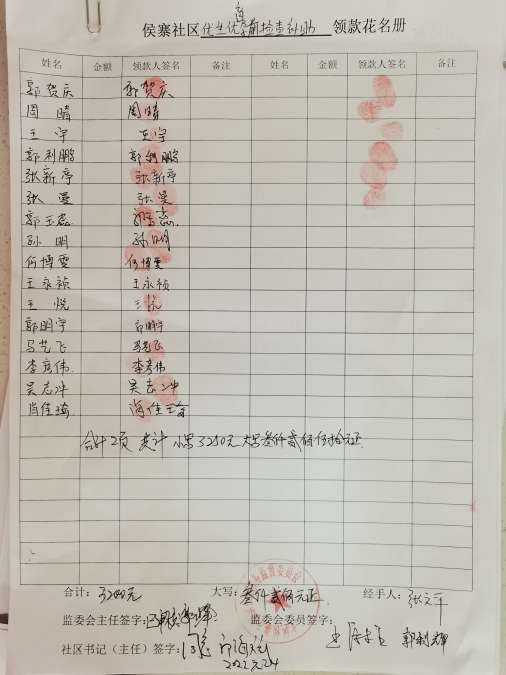 侯寨社区优生优育检查补助 领款花名册
姓名 金额 领款人签名 备注 姓名 金额 领款人签名 备注
郭贺庆 郭贺庆
周晴 周晴
王宇 王宇
郭利鹏 郭利鹏
张新亭 张新亭
张曼 张曼
郭玉磊
孙明 孙明
何博雯 何博雯
王永祯 王永祯
王悦 王悦
郭明宇 郭明宇
马艺飞 马艺飞
李彦伟 李彦伟
吴志冲 吴志冲
肖佳琦 肖佳琦
合计2页 共计 小写3250元 大写叁仟贰佰伍拾元正
合计: 3200元 大写: 叁仟贰佰元正 经手人:
监委会主任签字: 监委会委员签字:
郭利辉
社区书记(主任)签字: